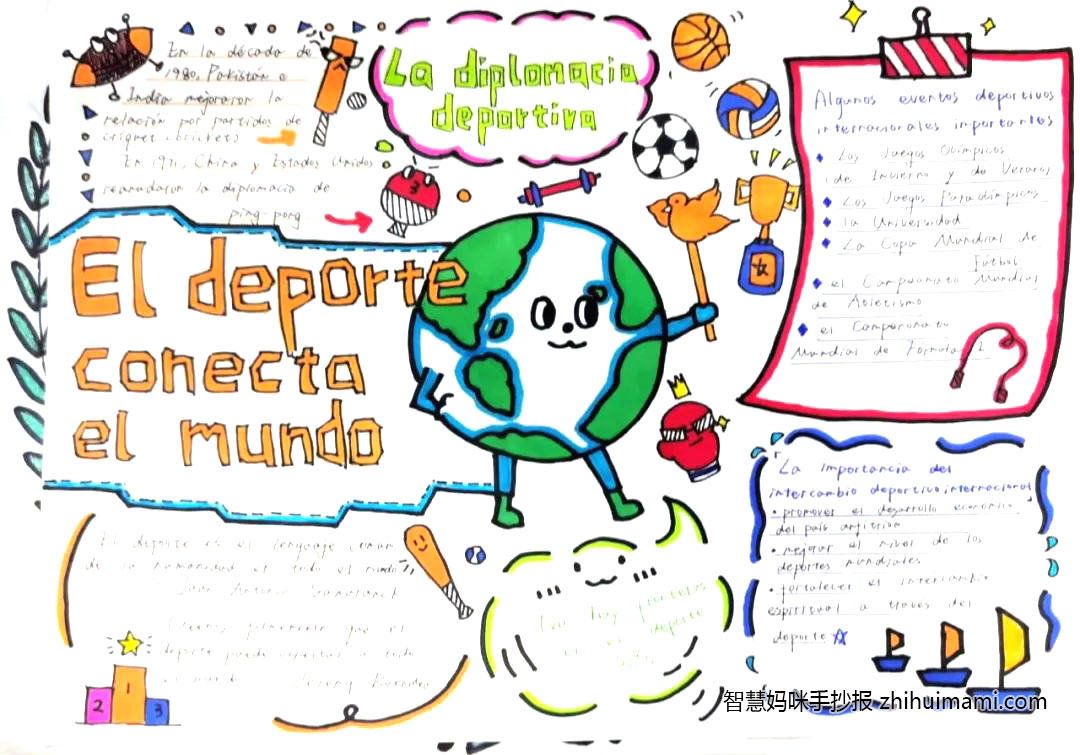 En la década de
1980, Pakistán e
India mejoraron la
relación por partidos de
críquet (crickets)
En 1971, China y Estados Unidos
reanudaron la diplomacia de
ping-pong
La diplomacia
deportiva
El deporte
conecta
el mundo
Algunos eventos deportivos
internacionales importantes
Los Juegos Olímpicos
de Invierno y de Verano
Los Juegos Paralímpicos
la Universidad
La Copa Mundial de
Fútbol
el Campeonato Mundial
de Atletismo
el Campeonato
Mundial de Formula 1
La importancia del
intercambio deportivo internacional
promover el desarrollo económico
del país anfitrión
mejorar el nivel de los
deportes mundiales
fortalecer el intercambio
espiritual a través del
deporte
El deporte es el lenguaje común
de la humanidad en todo el mundo
Juan Antonio Samaranch
que el
deporte puede a todo
el mundo
No hay fronteras
en el deporte
2 1 3
智慧妈咪手抄报 zhihuimami.com